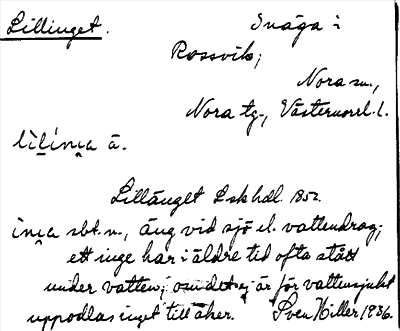 Lillinget. Snåga i
Rossvik;
Nora sn.,
Nora tg., Västernorrl. l.
lìlinga ä.
Lillänget Lskhdl. 1852.
inga sbt. n., äng vid sjö el. vattendrag;
ett inge har i äldre tid ofta stått
under vatten; om det ej är för vattensjukt
uppodlas inget till åker. Sven Hiller, 1936.